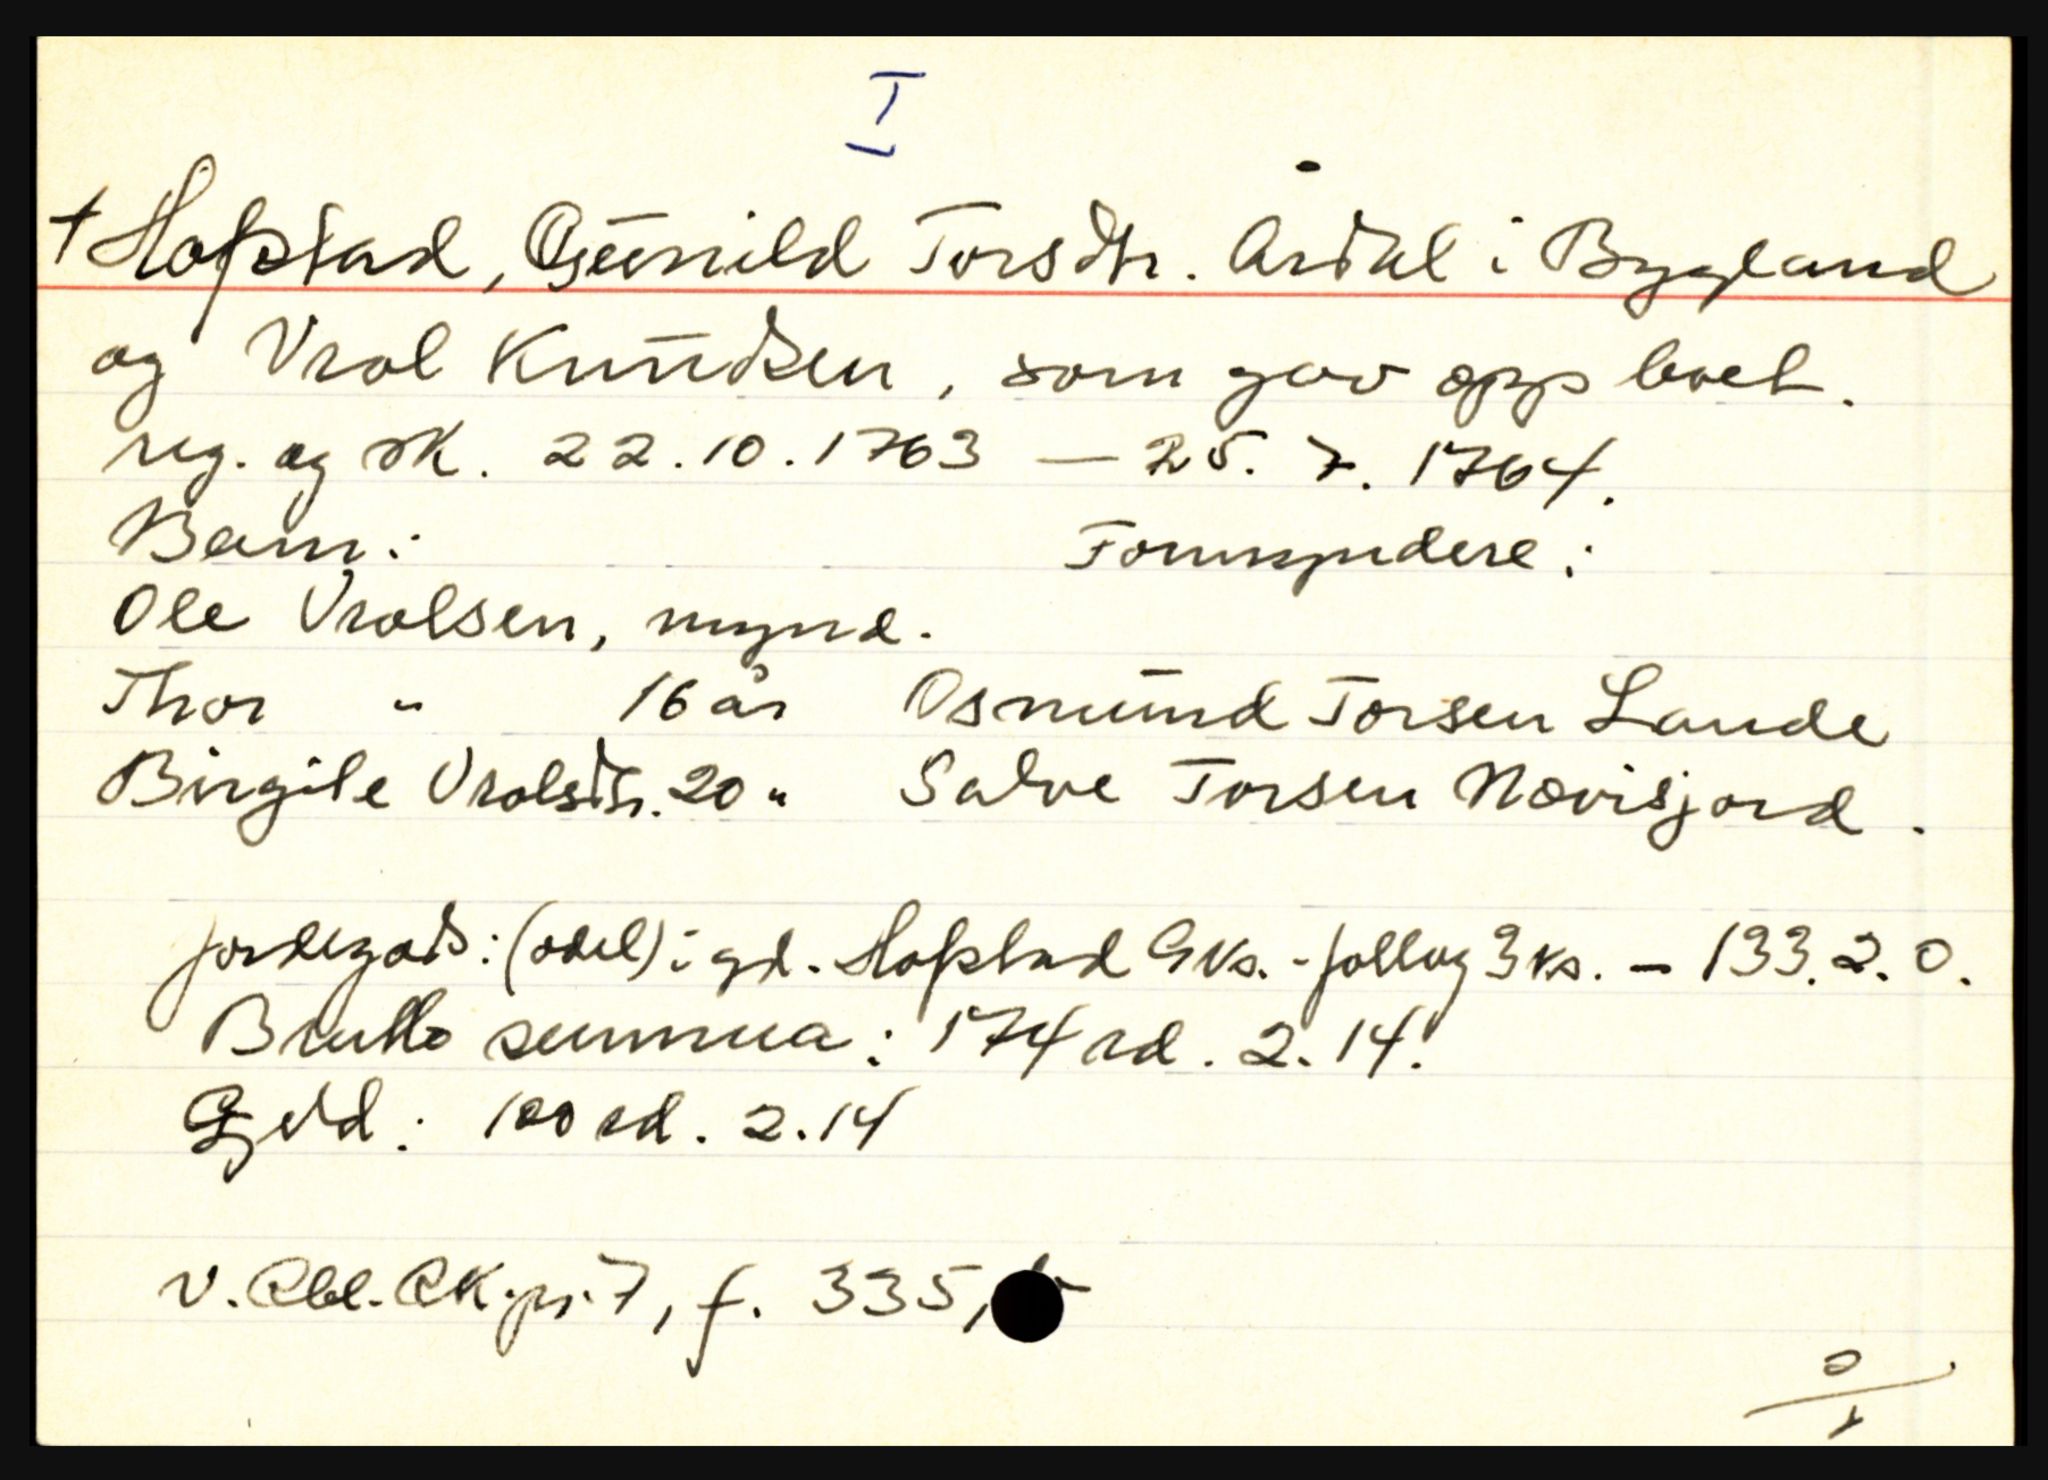 I
+ Hofstad, Gunild Torsdtr. Årdal i Bygland
og Vrol Knudsen, som gav opp boet.
reg. og sk. 22.10.1763 — 25. 7. 1764.
Barn: Formyndere:
Ole Vrolsen, mynd.
Thor " 16 år Osmund Torsen Lande
Birgite Vrolsdtr. 20 " Salve Torsen Nævisjord.
jordegods: (odel) i gd. Hofstad 9 ks. - follog 3 ks. - 133.2.0.
Brutto summa: 174 rd. 2.14.
Gjeld: 100 rd. 2.14
v. Rbl. Sk.pr. 7, f. 335,